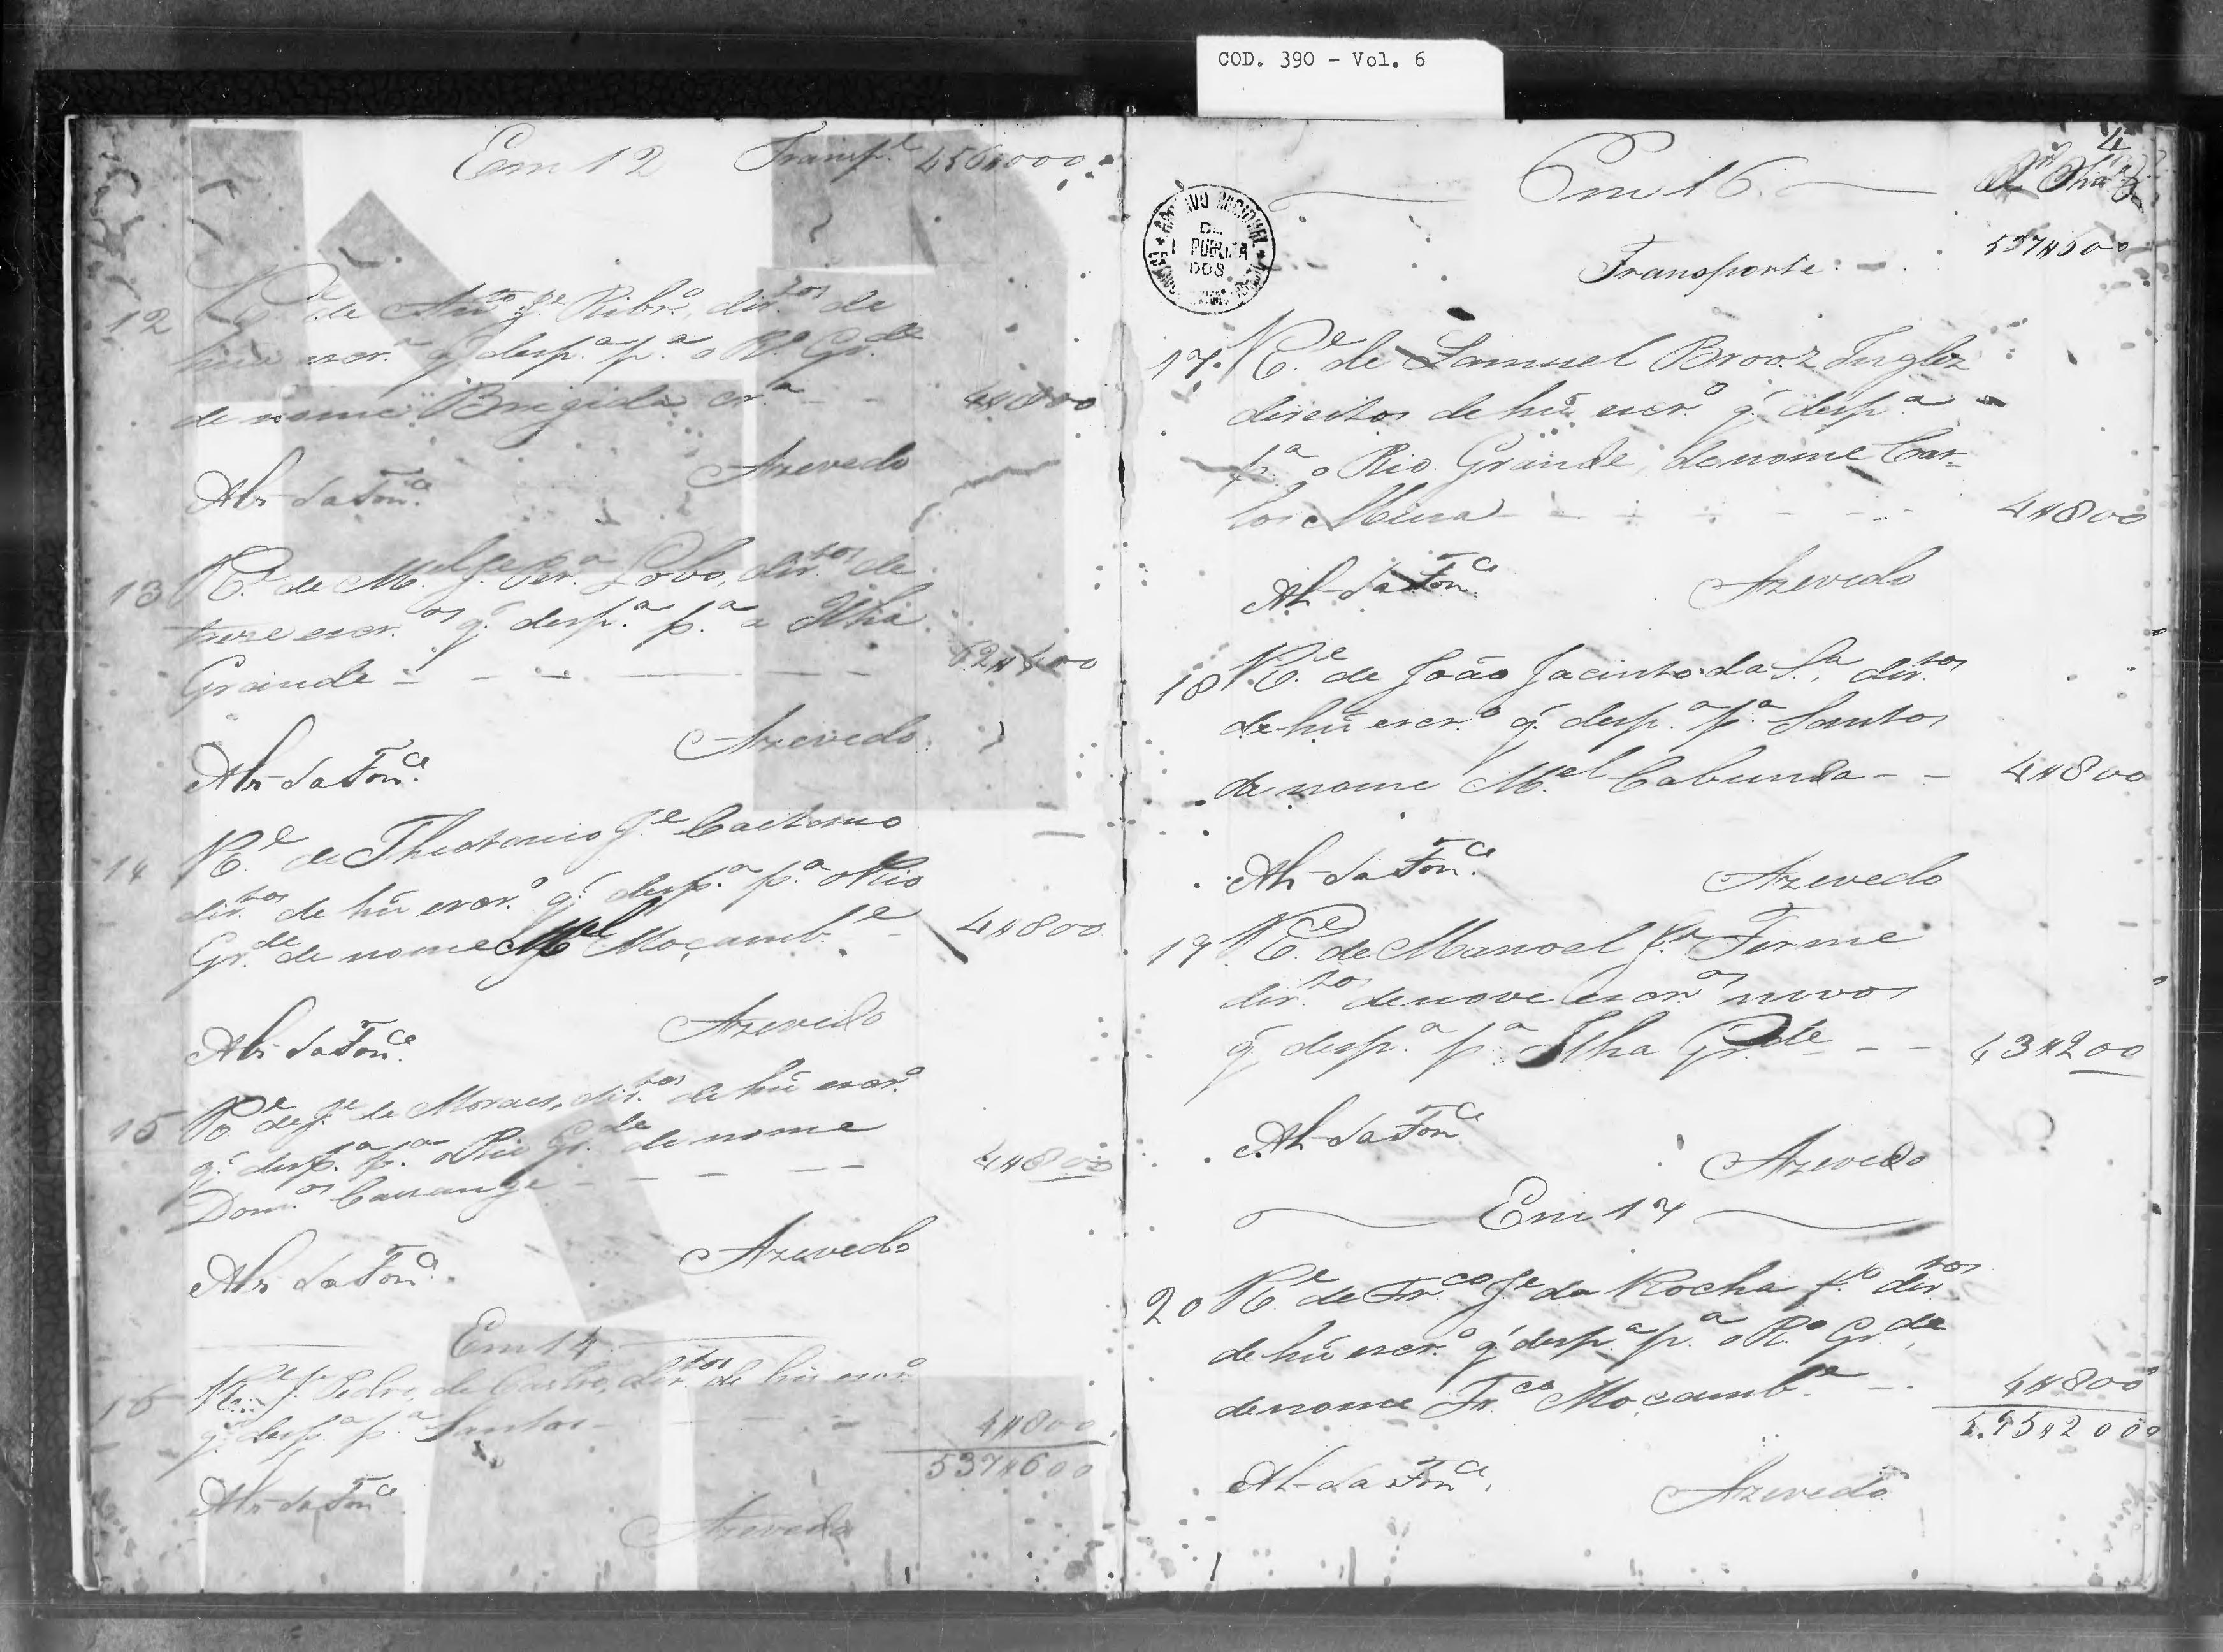 COD. 390 - Vol. 6
Em 12 Transp.e 456#000
12 R.e de Ant.o J.e Ribr.o, dir.tos de
hũa escr.a q' desp.a p.a o R.o Gr.de
de nome Brigida cr.a - - 4#800
Azevedo
da Fon.ca
13 R.e de M.el J.e Per.a Lobo, dir.tos de
treze escr.os q' desp.a p.a a Ilha
Grande - - - - - 62#400
Azevedo
da Fon.ca
14 R.e de Theotonio J.e Caetano
dir.tos de hũ escr.o q' desp.a p.a o Rio
Gr.de de nome M.el Moçamb.e - 4#800
Azevedo
da Fon.ca
15 R.e de J.e de Moraes, dir.tos de hũ escr.o
q' desp.a p.a o Rio Gr.de de nome
Dom.os Cassange - - - - - 4#800
Azevedo
da Fon.ca
Em 14
16 R.e J.e Pedro de Castro, dir.tos de hũ escr.o
q' desp.a p.a Santos - - - 4#800
537#600
da Fon.ca
Azevedo
4
Em 16
ARQUIVO NACIONAL
Transporte - 537#600
17 R.e de Samuel Brooz Inglez
direitos de hũ escr.o q' desp.a
p.a o Rio Grande, de nome Car-
los Mina - - - - - - 4#800
da Fon.ca Azevedo
18 R.e de João Jacinto da S.a, dir.tos
de hũ escr.o q' desp.a p.a Santos
de nome M.el Cabunda - - 4#800
da Fon.ca Azevedo
19 R.e de Manoel J.e Firme
dir.tos de nove escr.os novos
q' desp.a p.a Ilha Gr.de - - 43#200
da Fon.ca
Azevedo
Em 17
20 R.e de Fr.co J.e da Rocha f.o dir.tos
de hũ escr.o q' desp.a p.a o R.o Gr.de,
de nome Fr.co Moçamb.e - 4#800
595#200
da Fon.ca
Azevedo